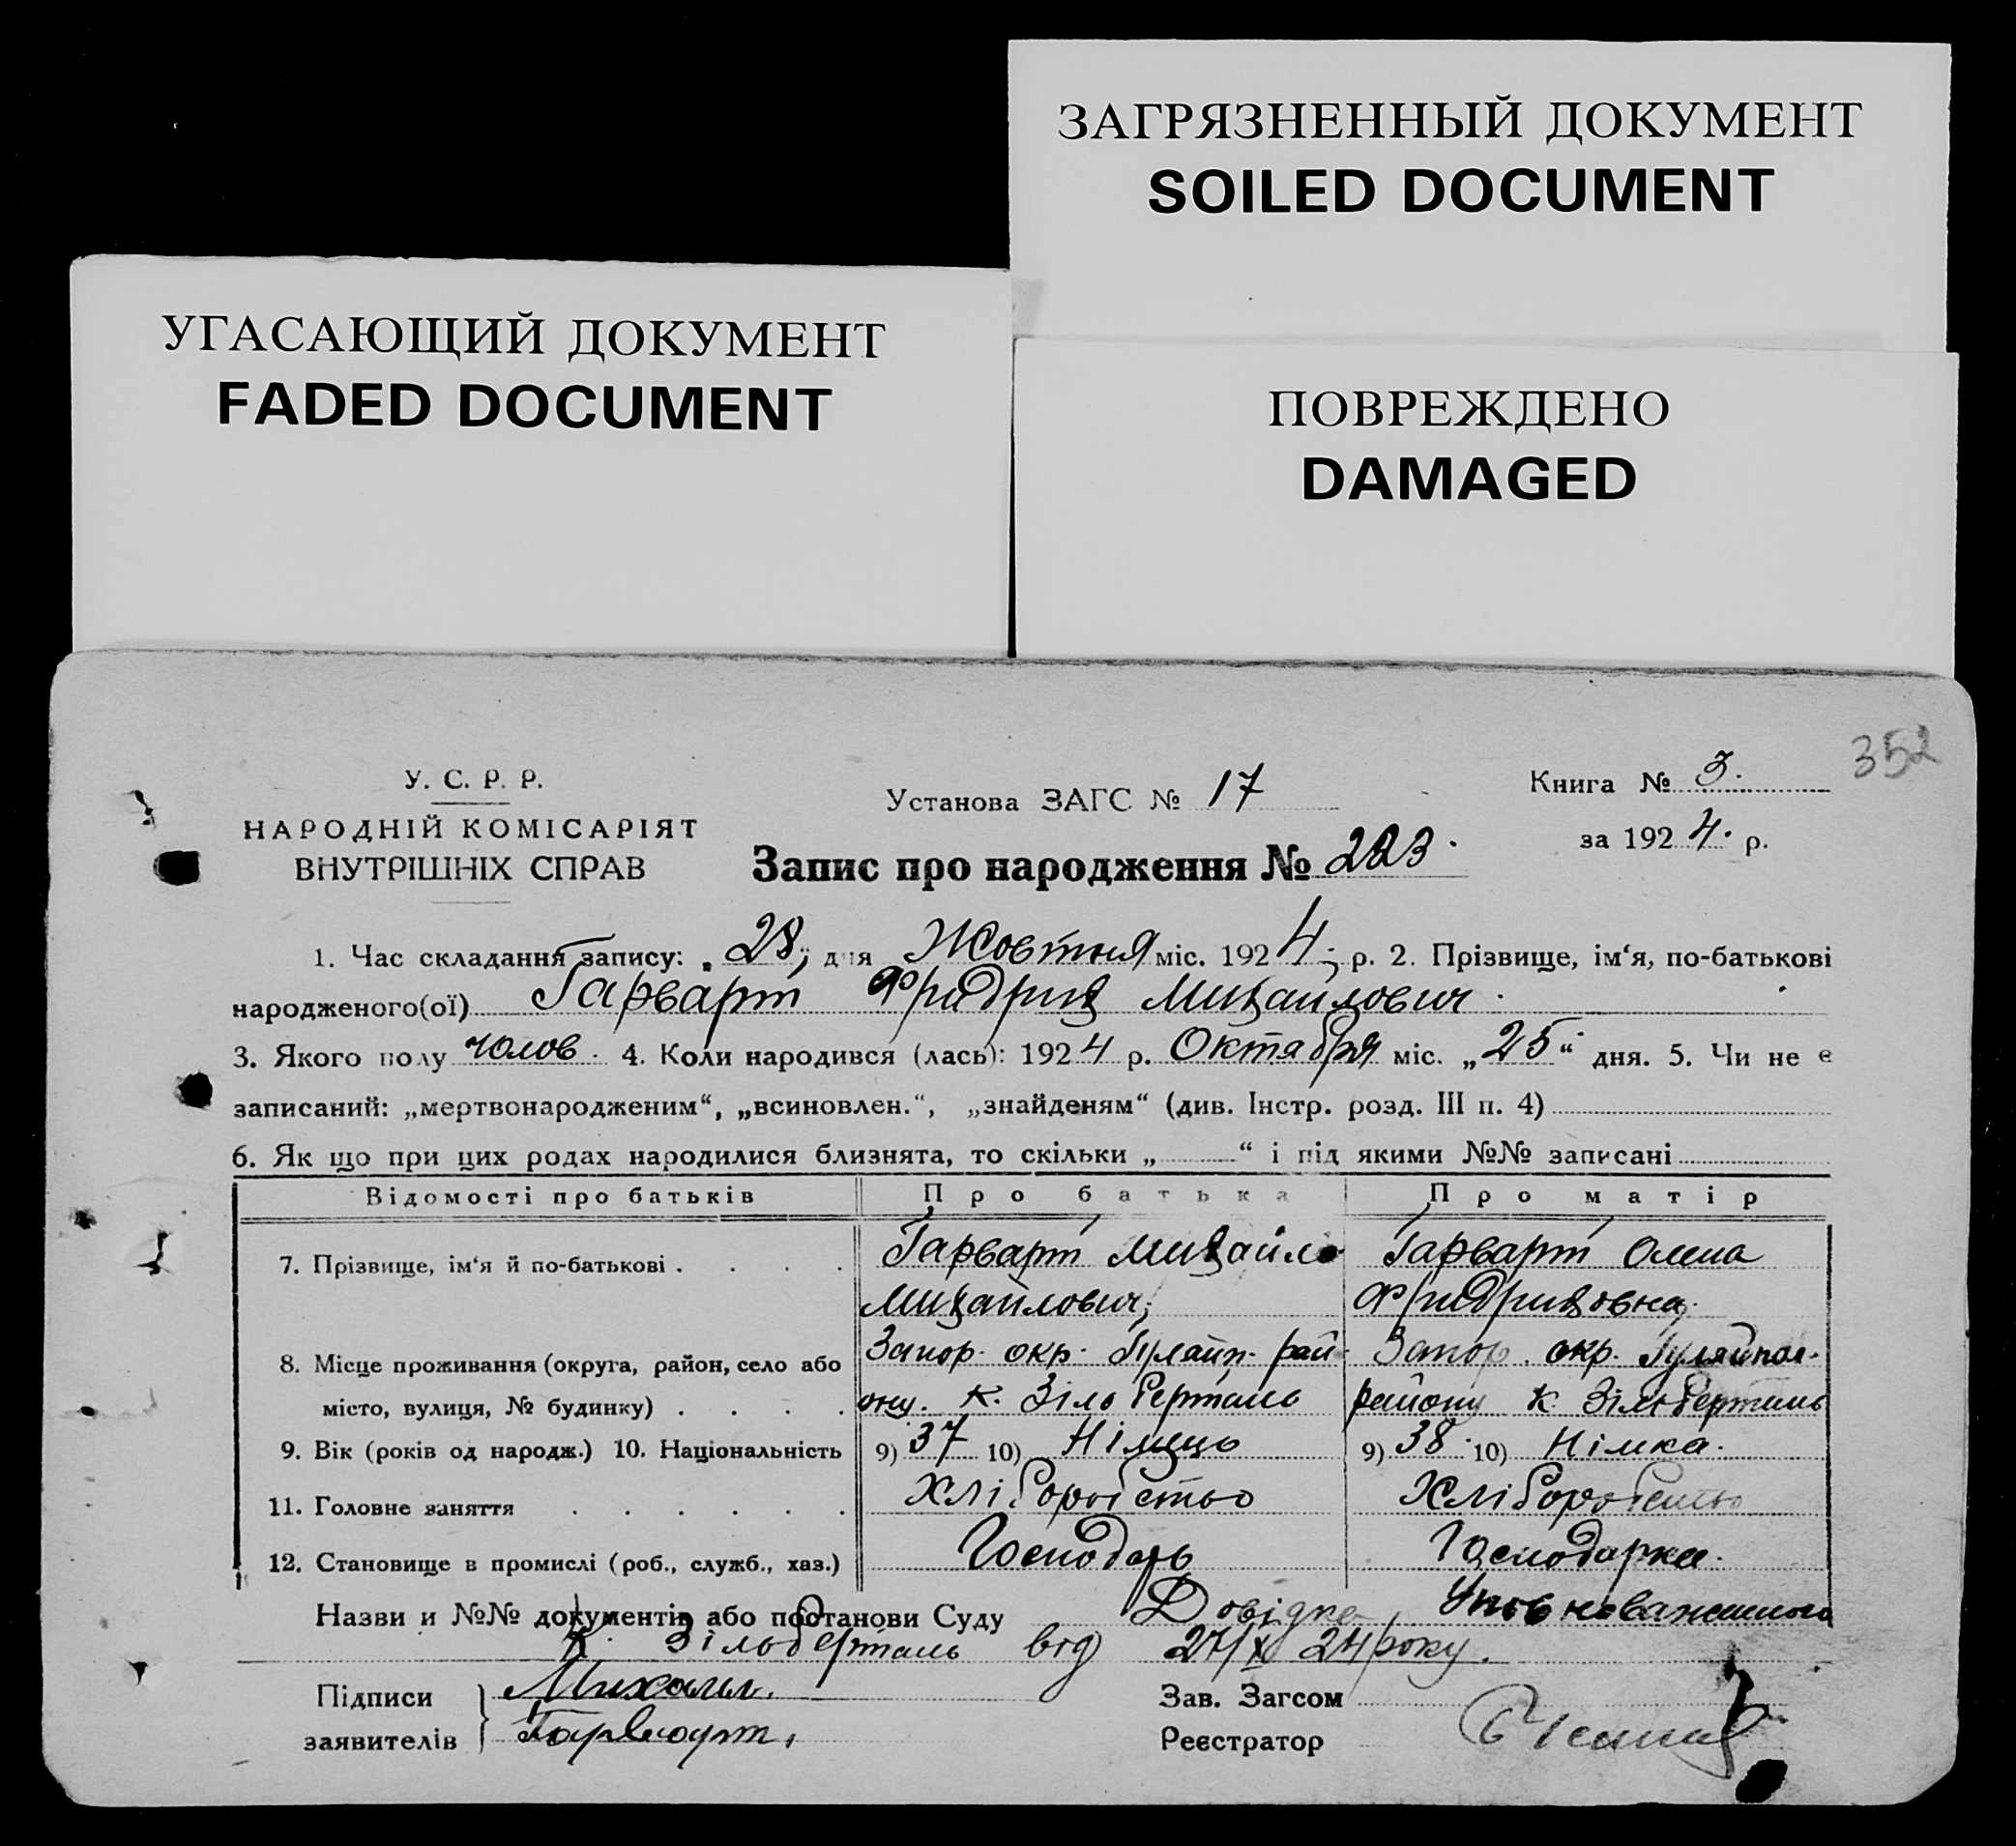 ЗАГРЯЗНЕННЫЙ ДОКУМЕНТ
SOILED DOCUMENT
УГАСАЮЩИЙ ДОКУМЕНТ
FADED DOCUMENT
ПОВРЕЖДЕНО
DAMAGED
352
У. С. Р. Р.
НАРОДНІЙ КОМІСАРІЯТ
ВНУТРІШНІХ СПРАВ
Установа ЗАГС № 17
Книга № 3.
за 1924. р.
Запис про народження № 223.
1. Час складання запису: „28„ дня Жовтня міс. 1924. р. 2. Прізвище, ім‘я, по-батькові
народженого(ої) Гарварт Фридрих Михайлович.
3. Якого полу чолов. 4. Коли народився (лась): 1924 р. Октября міс. „25“ дня. 5. Чи не є
записаний: „мертвонародженим“, „всиновлен.“, „знайденям“ (див. Інстр. розд. III п. 4)
6. Як що при цих родах народилися близнята, то скільки „ “ і під якими №№ записані
Відомості про батьків Про батька Про матір
7. Прізвище, ім‘я й по-батькові . . . . Гарварт Михайло Гарварт Олена
Михайлович; Фридриховна;
8. Місце проживання (округа, район, село або Запор. окр. Гуляйп. рай- Запор. окр. Гуляйпол.
місто, вулиця, № будинку) . . . . ону. К. Зільберталь району К. Зільберталь
9. Вік (років од народж.) 10. Національність 9) 37 10) Німець 9) 38 10) Німка.
11. Головне заняття . . . . . . Хліборобство Хліборобство
12. Становище в промислі (роб., служб., хаз.) Господарь Господарка.
Назви и №№ документів або постанови Суду Довідка Уповноваженного
К. Зільберталь від 27/X 24 року.
Підписи Михаил. Зав. Загсом
заявителів Гарварт. Реєстратор